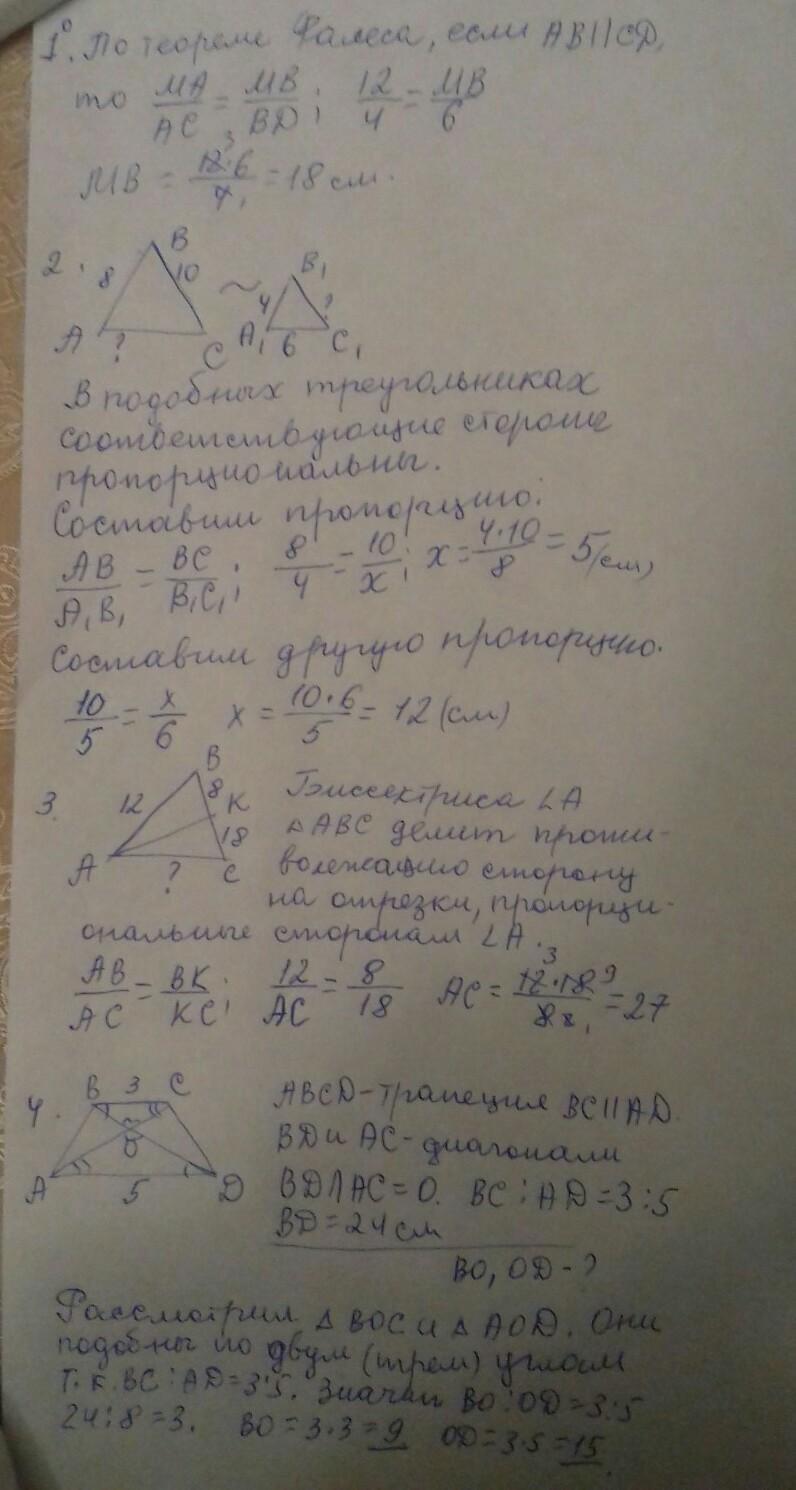 1°. По теореме Фалеса, если AB||CD,
то MA/AC = MB/BD; 12/4 = MB/6
MB = 12·6/4 = 18 см.
3
1
2.
B
8
10
A
?
C
~
B₁
4
?
A₁
6
C₁
В подобных треугольниках
соответствующие стороны
пропорциональны.
Составим пропорцию:
AB/A₁B₁ = BC/B₁C₁; 8/4 = 10/x; x = 4·10/8 = 5(см)
Составим другую пропорцию.
10/5 = x/6 x = 10·6/5 = 12 (см)
3.
B
12
8
K
18
A
?
C
Биссектриса ∠A
△ABC делит проти-
волежащую сторону
на отрезки, пропорци-
ональные сторонам ∠A.
AB/AC = BK/KC; 12/AC = 8/18 AC = 12·18/8 = 27
3
9
2
1
4.
B 3 C
O
A
5
D
ABCD-трапеция BC||AD.
BD и AC-диагонали
BD∩AC=O. BC:AD=3:5
BD=24см
BO, OD-?
Рассмотрим △BOC и △AOD. Они
подобны по двум (трем) углам
Т.к. BC:AD=3:5. Значит BO:OD=3:5
24:8=3. BO=3·3=9 OD=3·5=15.